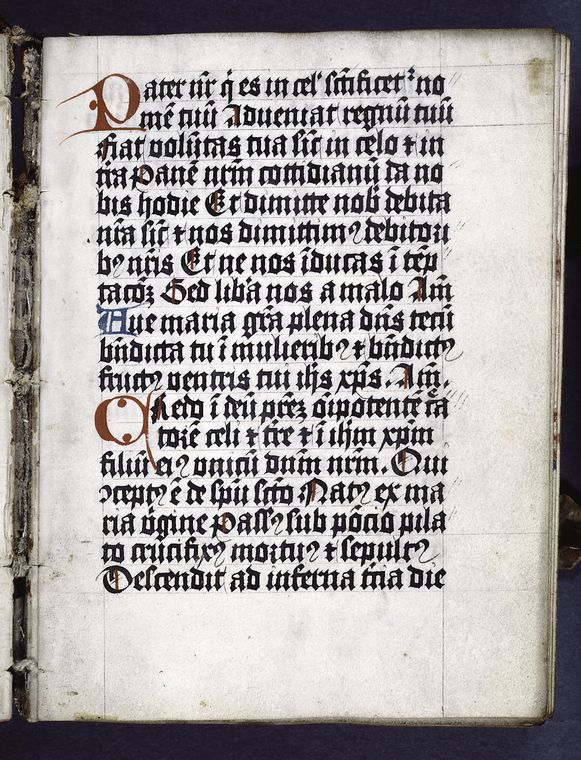 Pater nr̄ q̄ es in cel̛ sc̄ificet᷑ no
mē tuū Adueniat regnū tuū
Fiat volūtas tua sic̄ in celo ⁊ in
tr̄a Panē nrm̄ cottidianū da no
bis hodie Et dimitte nob̄ debita
nr̄a sic̄ ⁊ nos dimittimꝰ debitori
bꝰ nr̄is Et ne nos īducas ī tēp
tacōꝫ Sed lib̄a nos a malo Am̄
Aue maria gr̄a plena dn̄s tecū
bn̄dicta tu ī mulieribꝰ ⁊ bn̄dictꝰ
fructꝰ ventris tui ih̄s xp̄s. Am̄.
Credo ī deū pr̄eꝫ oīpotentē c̄a
toꝛē celi ⁊ tr̄e ⁊ ī ih̄m xp̄m
filiū eiꝰ vnicū dn̄m nrm̄. Qui
ꝯceptꝰ ē de sp̄u sc̄to Natꝰ ex ma
ria v̄gine Passꝰ sub pōcio pila
to crucifixꝰ moꝛtuꝰ ⁊ sepultꝰ
Descendit ad inferna t̄cia die